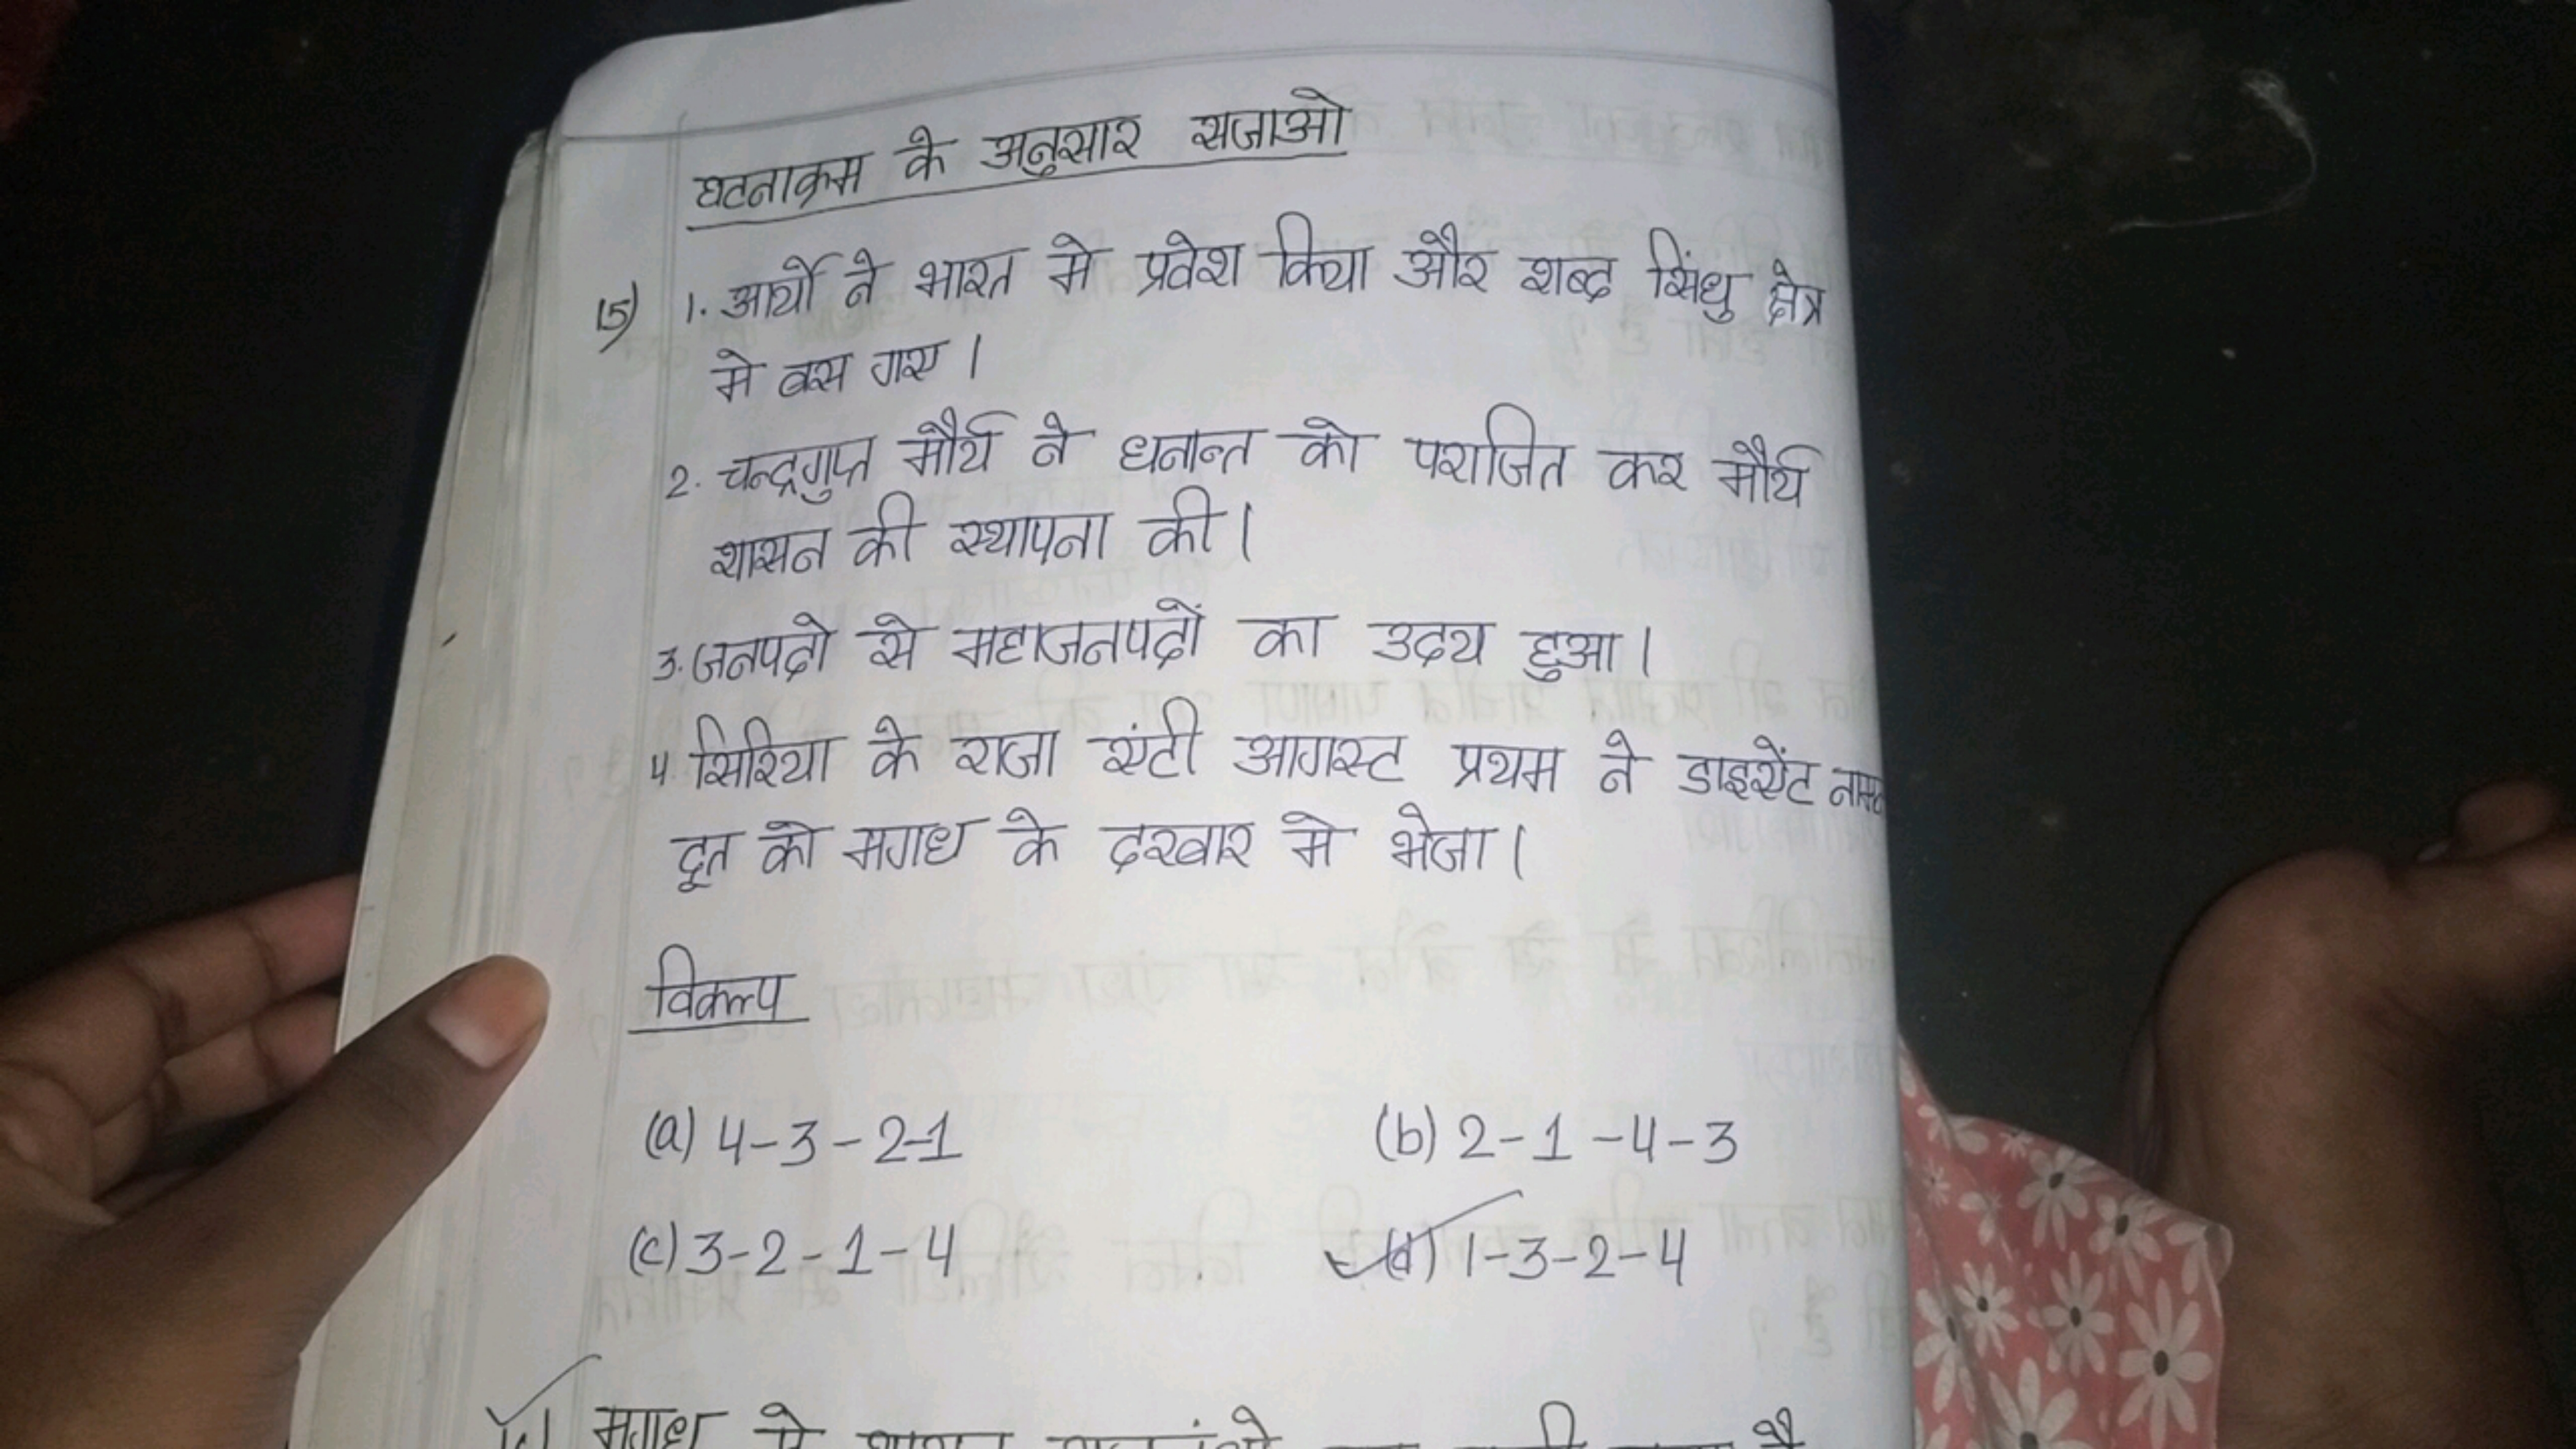 घटनाक्रम के अनुसार सजाओ
15) 1. आर्यो ने भारत मे प्रवेश किया और शब्द सिंधु क्षेत्र
मे बस गए।
2. चन्द्रगुप्त मौर्य ने धनान्त को पराजित कर मौर्य
शासन की स्थापना की।
3. जनपदो से महाजनपदों का उदय हुआ।
4. सिरिया के राजा एंटी आगस्ट प्रथम ने डाइसेंट
दूत को मगध के दरबार मे भेजा।
विकल्प
(a) 4-3-2-1 (b) 2-1-4-3
(c) 3-2-1-4 (d) 1-3-2-4
मगध